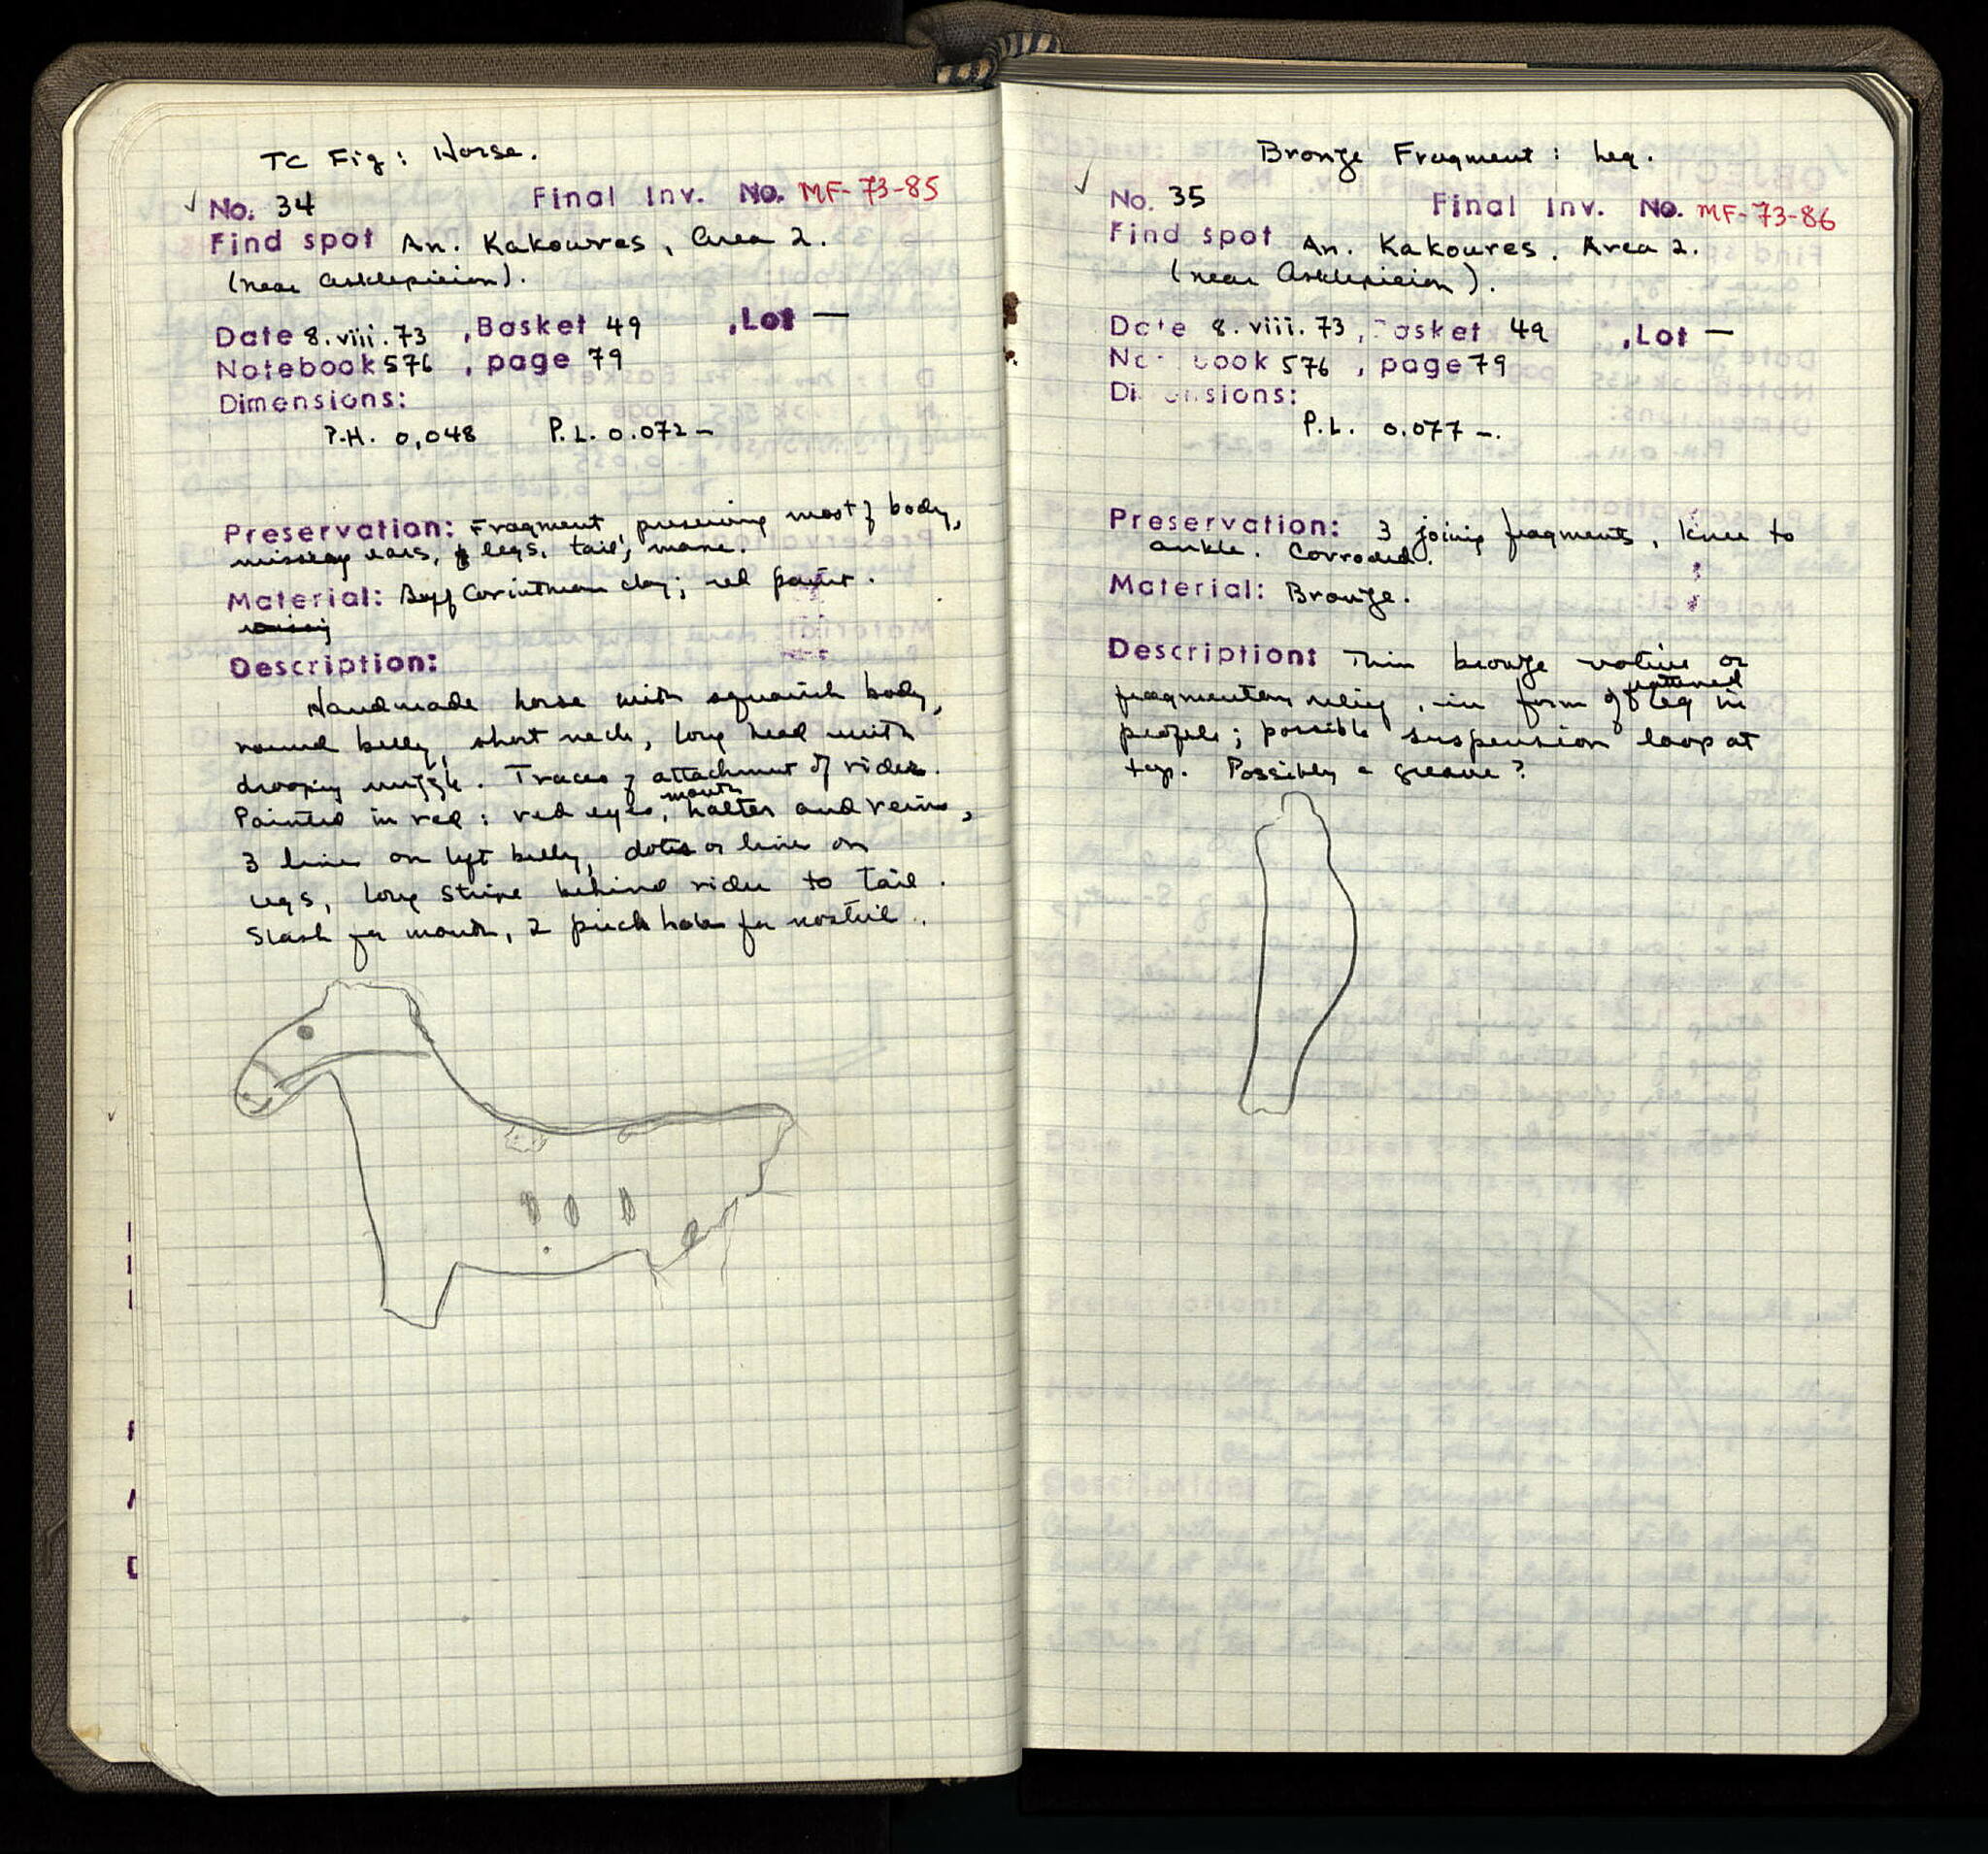 TC Fig: Horse.
No. 34 Final Inv. No. MF-73-85
Find spot An. Kakoures, Area 2.
(near Asklepieion).
Date 8.viii.73 , Basket 49 , Lot —
Notebook 576 , page 79
Dimensions:
P.H. 0,048 P.L. 0.072 –
Preservation: Fragment, preserving most of body,
missing ears, legs, tail, mane.
Material: Buff Corinthian clay; red paint.
Description:
Handmade horse with squarish body,
round belly, short neck, long head with
drooping muzzle. Traces of attachment of rider.
mouth
Painted in red: red eyes, halter and reins,
3 lines on left belly, dots or lines on
legs, long stripe behind rider to tail.
Slash for mouth, 2 prick holes for nostril.
Bronze Fragment: Leg.
No. 35 Final Inv. No. MF-73-86
Find spot An. Kakoures. Area 2.
(near Asklepieion).
Date 8.viii.73, Basket 49 , Lot —
Notebook 576 , page 79
Dimensions:
P.L. 0.077 –.
Preservation: 3 joining fragments, knee to
ankle. Corroded.
Material: Bronze.
Description: Thin bronze votive or
fragmentary relief, in form of leg in
profile; possible suspension loop at
top. Possibly a greave?